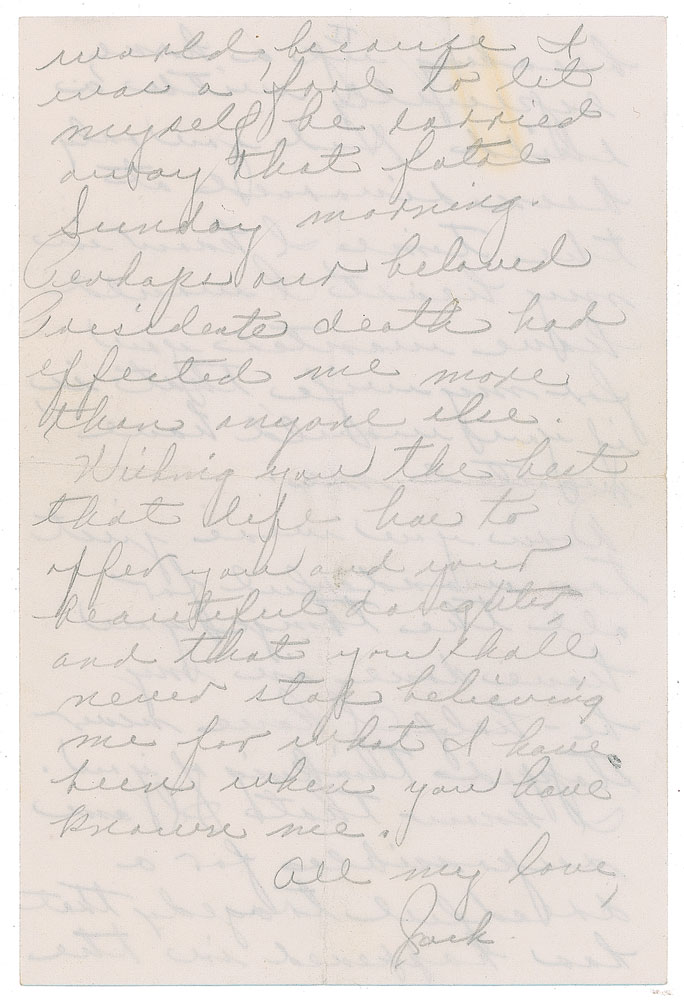 world, because I
was a fool to let
myself be carried
away that fatal
Sunday morning.
Perhaps our beloved
Presidents death had
effected me more
than anyone else.
Wishing you the best
that life has to
offer you and your
beautiful daughter,
and that you shall
never stop believing
me for what I have
been when you have
known me.
All my love,
Jack